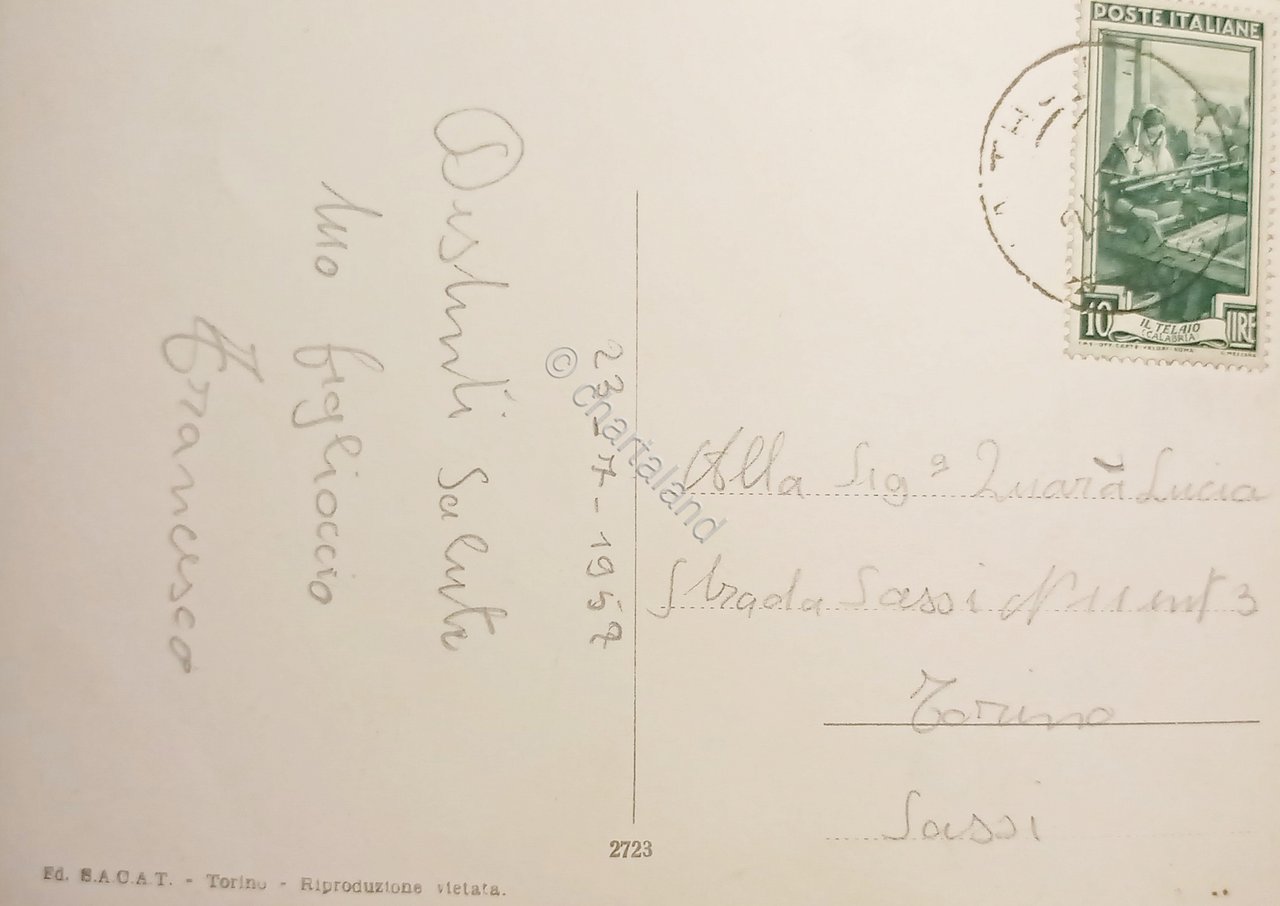 23-7-1957
Distinti Saluti
tuo figlioccio
Francesco
POSTE ITALIANE
10 LIRE
IL TELAIO
(CALABRIA)
Alla Sigª Quarà Lucia
Strada Sassi N 11 int 3
Torino
Sassi
2723
Ed. S.A.C.A.T. - Torino - Riproduzione vietata.
© chartaland